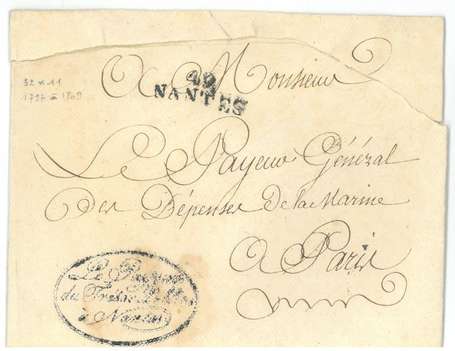 32 x 11
1792 à 1808
49
NANTES
A Monsieur
Le Payeur Général
Des Dépenses De la Marine
A Paris
Le Payeur
du Trésor Public
à Nantes